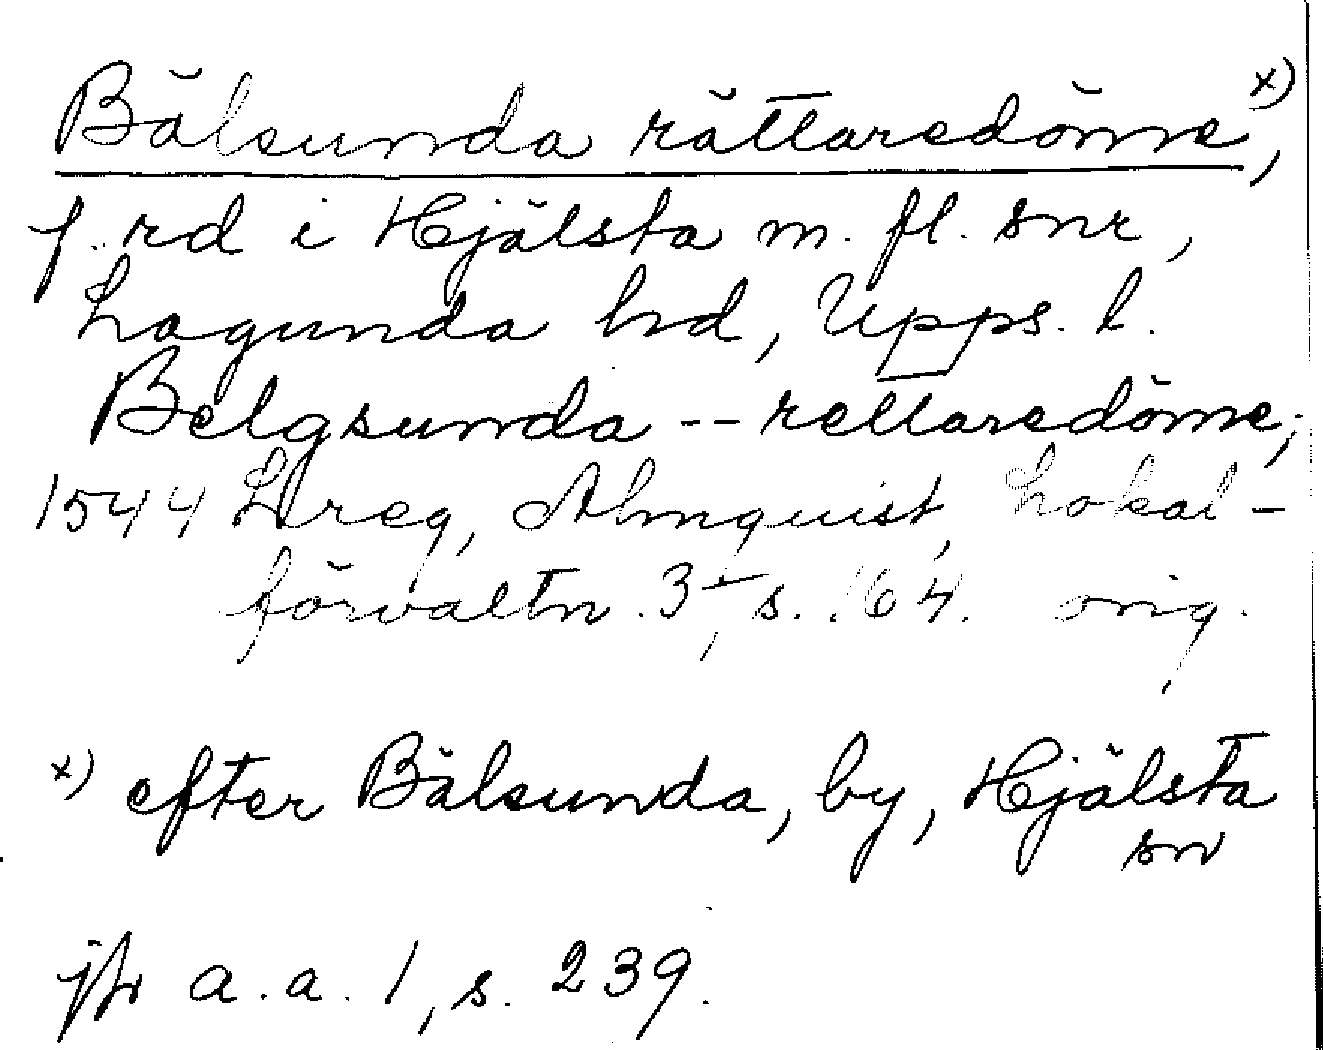 Bälsunda rättaredöme x),
f. rd i Hjälsta m. fl. snr,
Lagunda hd, Upps. l.
Belgsunda -- rettaredöme;
1544 Lreg, Almquist, Lokal-
förvaltn. 3, s. 164. orig.
x) efter Bälsunda, by, Hjälsta
sn
jfr a. a. 1, s. 239.